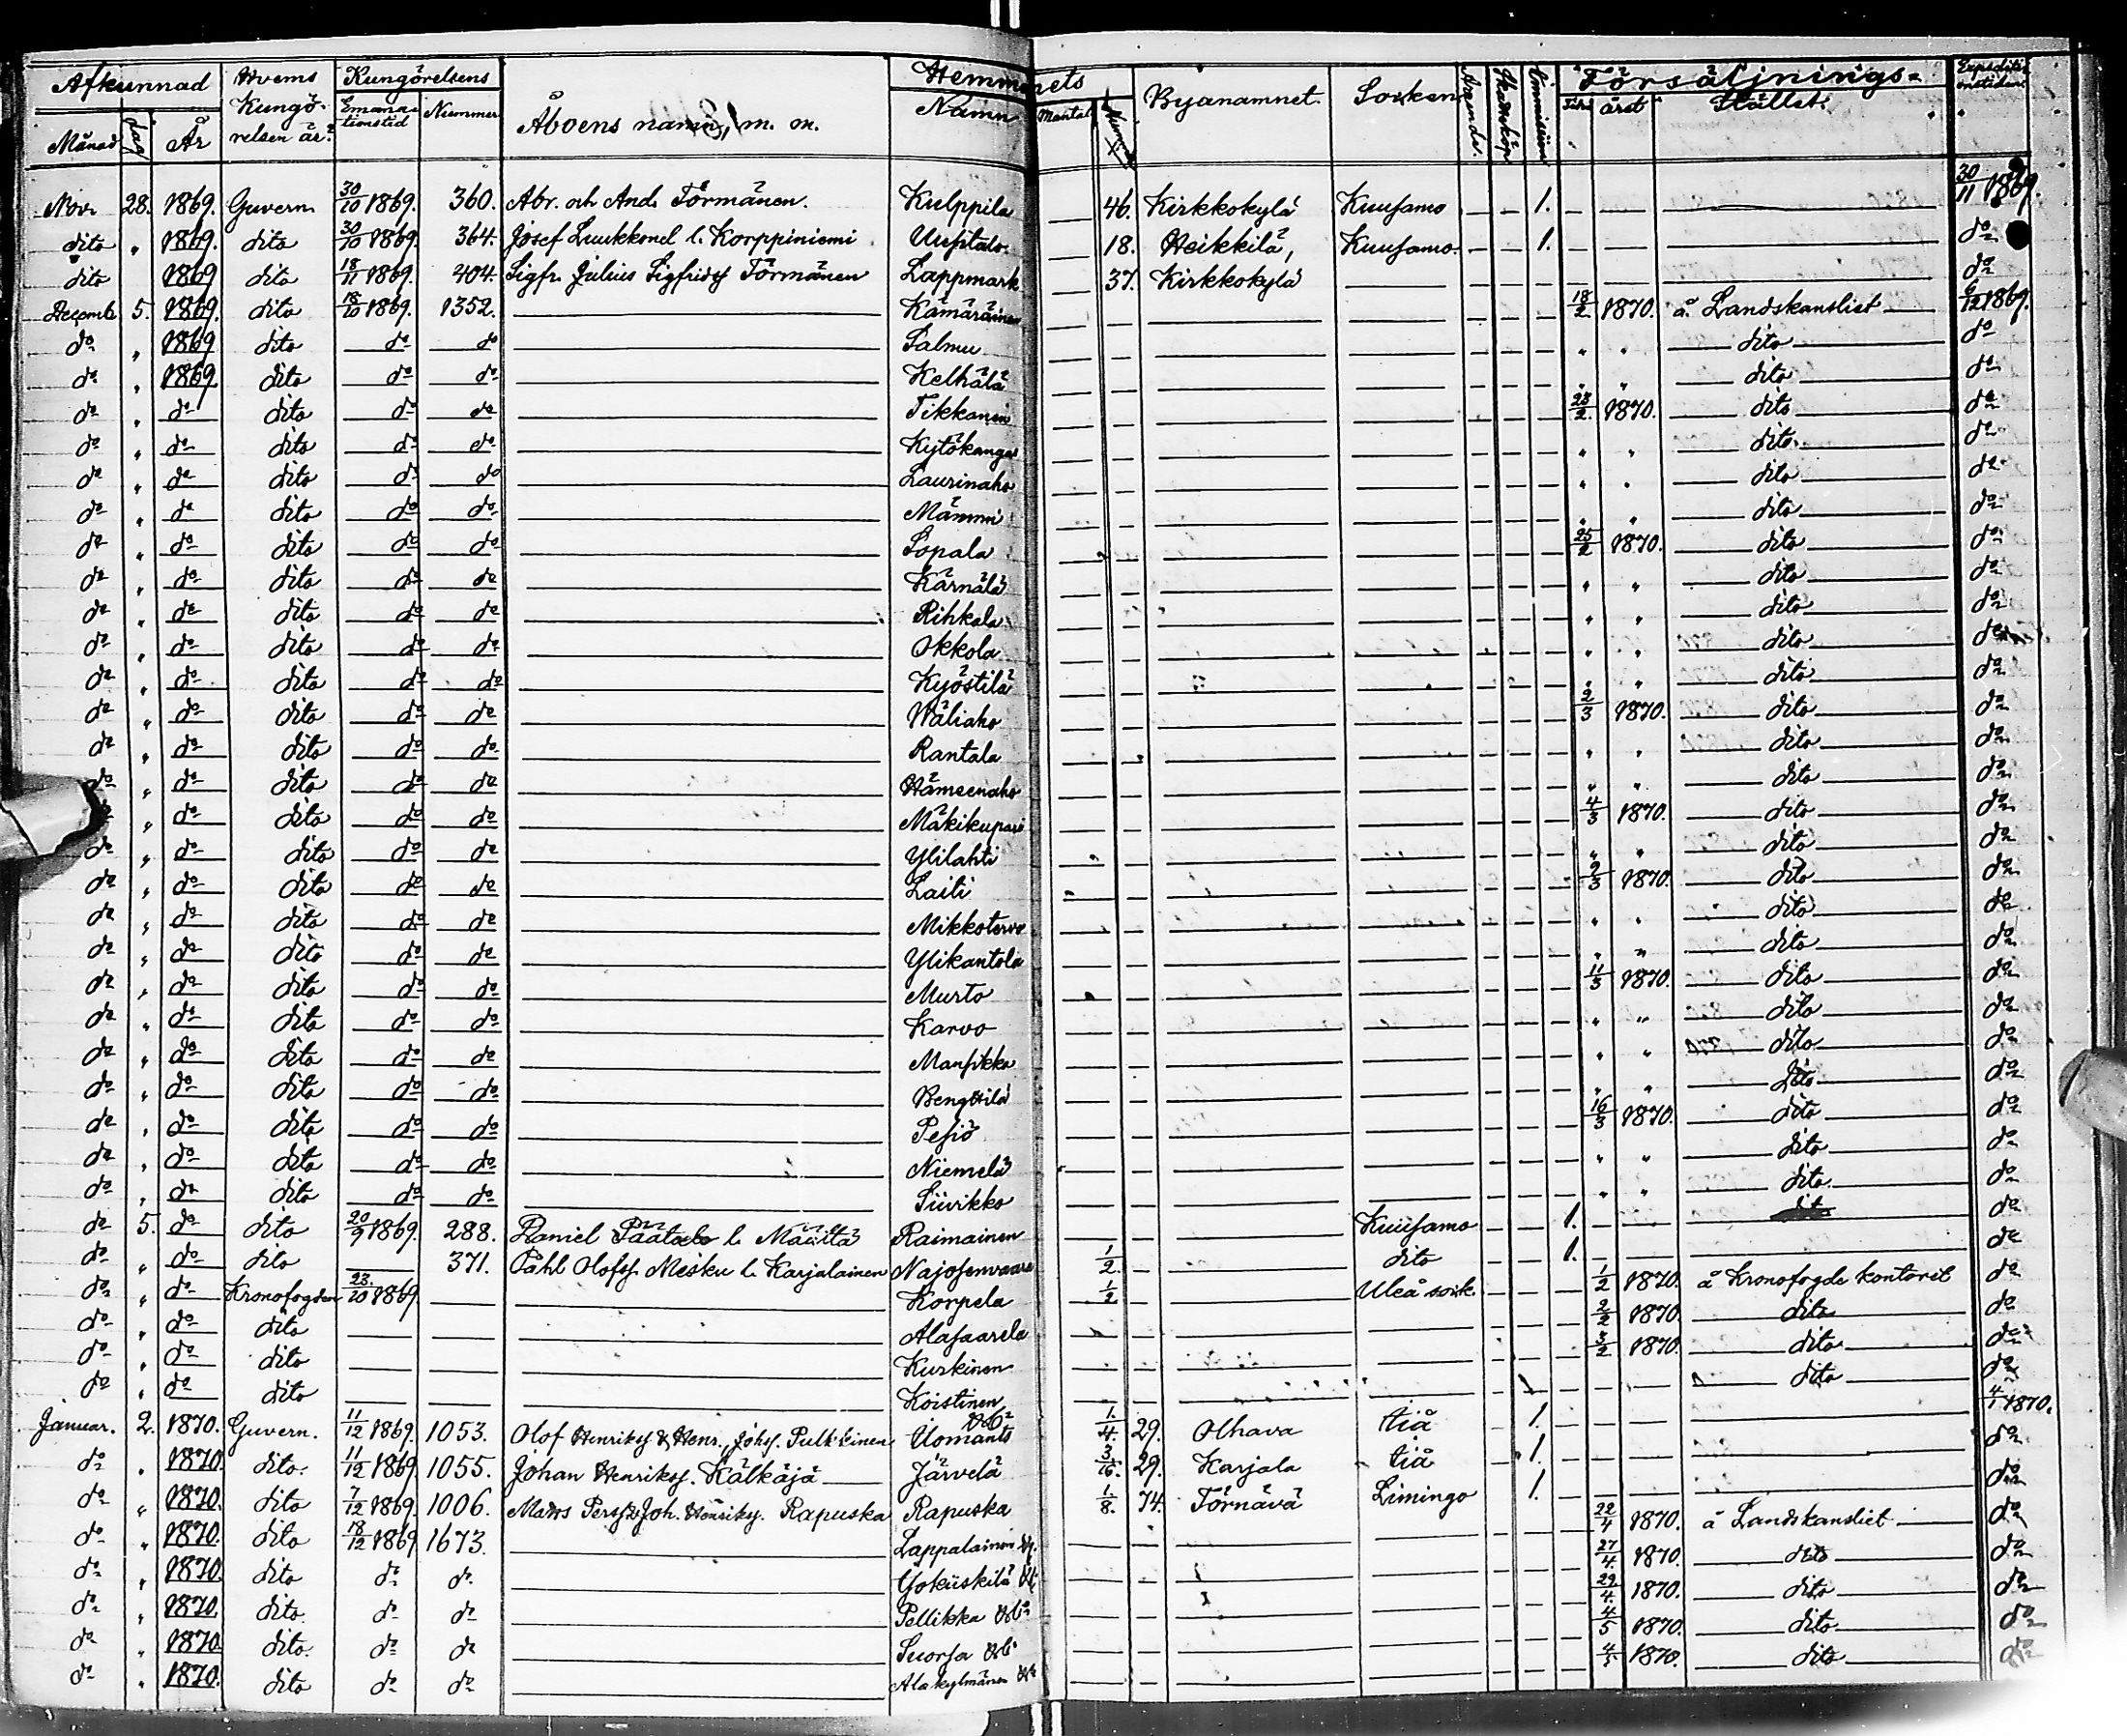 Afkunnad Hvems Kungö- relsen är? Kungörelsens Åboens namn, m. m. Hemmanets Byanamnet. Socken Försäljnings- Expeditionstiden.
Månad dag År Emana- tionstid Nummer Namn Mantal Immission året Stället.
Nov. 28. 1869. Guvern. 30/10 1869. 360. Abr. och And. Törmänen. Kulppila — 46. Kirkkokylä Kuusamo — — 1. — — — 30/11 1869.
dito „ 1869. dito 30/10 1869. 364. Josef Luukkonel l. Korppiniemi Uusitalo — 18. Heikkilä, Kuusamo — — 1. — — — do
dito 1869 dito 18/11 1869. 404. Sigfr. Julius Sigfridss Törmänen Lappmark — 37. Kirkkokylä — — — — — — — do
Decemb. 5. 1869. dito 18/10 1869. 1352. — Kämäräinen — — — — — — — 18/2 1870. å Landskansliet 6/12 1869.
do „ 1869 dito do do — Salmu — — — — — — — „ „ dito do
do „ 1869 dito do do — Kelhälä — — — — — — — „ „ dito do
do „ do dito do do — Tikkanen — — — — — — — 23/2 1870. dito do
do „ do dito do do — Kytökangas — — — — — — — „ „ dito. do
do „ do dito do do — Laurinaho — — — — — — — „ „ dito do
do „ do dito do do — Mämmi — — — — — — — „ „ dito do
do „ do dito do do — Sopala — — — — — — — 25/2 1870. dito do
do „ do dito do do — Kärnälä — — — — — — — „ „ dito do
do „ do dito do do — Rihkala — — — — — — — „ „ dito do
do „ do dito do do — Okkola — — — — — — — „ „ dito do
do „ do dito do do — Kyöstilä — — — — — — — „ „ dito do
do „ do dito do do — Wäliaho — — — — — — — 2/3 1870. dito do
do „ do dito do do — Rantala — — — — — — — „ „ dito do
do „ do dito do do — Hämeenaho — — — — — — — „ „ dito do
do „ do dito do do — Mäkikupari — — — — — — — 4/3 1870. dito do
do „ do dito do do — Ylilahti — — — — — — — „ „ dito do
do „ do dito do do — Laiti — — — — — — — 9/3 1870. dito do
do „ do dito do do — Mikkotervo — — — — — — — „ „ dito do
do „ do dito do do — Ylikantola — — — — — — — „ „ dito do
do „ do dito do do — Murto — — — — — — — 11/3 1870. dito do
do „ do dito do do — Karvo — — — — — — — „ „ dito do
do „ do dito do do — Mansikka — — — — — — — „ „ dito do
do „ do dito do do — Bengttilä — — — — — — — „ „ dito do
do „ do dito do do — Pesiö — — — — — — — 16/3 1870. dito do
do „ do dito do do — Niemelä — — — — — — — „ „ dito do
do „ do dito do do — Siirikko — — — — — — — „ „ dito do
do 5. do dito 20/9 1869. 288. Daniel Päätalo l. Määttä Raimainen — — — Kuusamo — — 1. — — do
do „ do dito — 371. Påhl Olofss. Mesku l. Karjalainen Najosenvaara 1/2 — — dito — — 1. — — do
do „ do Kronofogden 23/10 1869 — — Korpela 1/2 — — Uleå sock. — — — 1/2 1870. å Kronofogde kontoret do
do „ do dito — — — Alasaarela — — — — — — — 2/2 1870. dito do
do „ do dito — — — Kurkinen — — — — — — — 3/2 1870. dito do
do „ do dito — — — Koistinen — — — — — — — dito do
Januar. 2. 1870. Guvern. 11/12 1869. 1053. Olof Henrikss & Henr. Johss. Pulkkinen Uomants 1/4. 29. Olhava Iiå — 1. — 4/1 1870.
do „ 1870. dito. 11/12 1869. 1055. Johan Henrikss. Kälkäjä Järvelä 3/16. 29. Karjala Iiå — 1. — do
do „ 1870. dito 7/12 1869. 1006. Matts Perss & Joh. Henrikss. Rapuska Rapuska 1/8. 74. Törnävä Limingo — 1. — do
do „ 1870. dito 18/12 1869 1673. — Lappalainen — — — — — 22/4 1870. å Landskansliet do
do „ 1870. dito do do — — — — — — 27/4. 1870. dito do
do „ 1870. dito. do do — Pellikka — — — — — 29/4 1870. dito do
do „ 1870 dito. do do — Suorsa — — — — — 4/5 1870. dito do
do „ 1870. dito do do — Alakylmänen — — — — — 1870. dito do